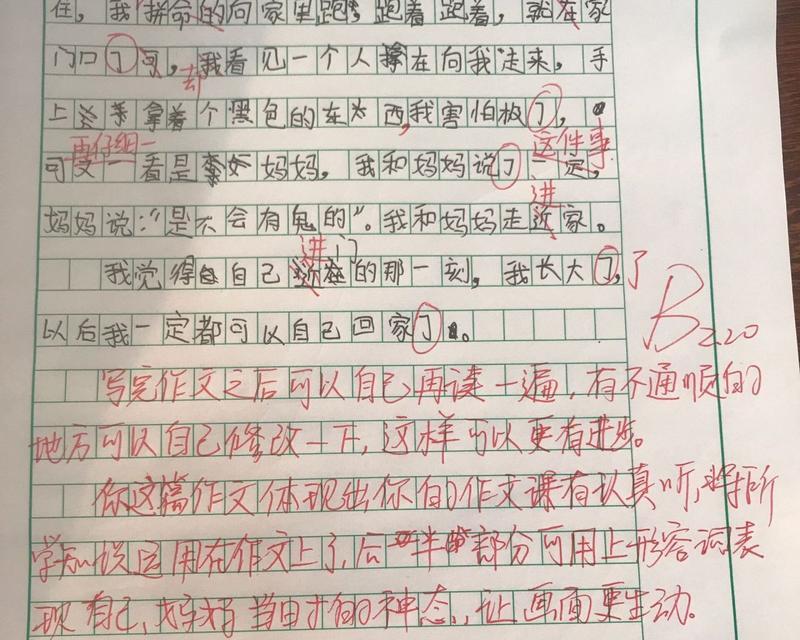 住，我拼命的向家里跑，跑着跑着，就在家
门口了可，我看见一个人拿在向我走来，手
却
上拿着个黑色的东西，我害怕极了，
再仔细一
这件事
可又一看是妈妈，我和妈妈说了定，
进
妈妈说："是不会有鬼的"。我和妈妈走近家。
进门
我觉得自己的那一刻，我长大了，
了
以后我一定都可以自己回家了。
B
2.20
写完作文之后可以自己再读一遍，有不通顺的
地方可以自己修改一下，这样可以更有进步。
你这篇作文体现出你的作文课有认真听，将所
学知识运用在作文上了，后半部分可用上形容词表
现自己、妈妈当时的神态，让画面更生动。